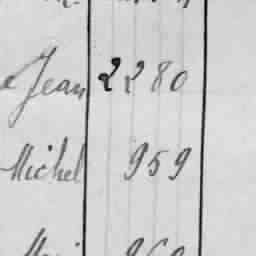 Jean 2280
Michel 959